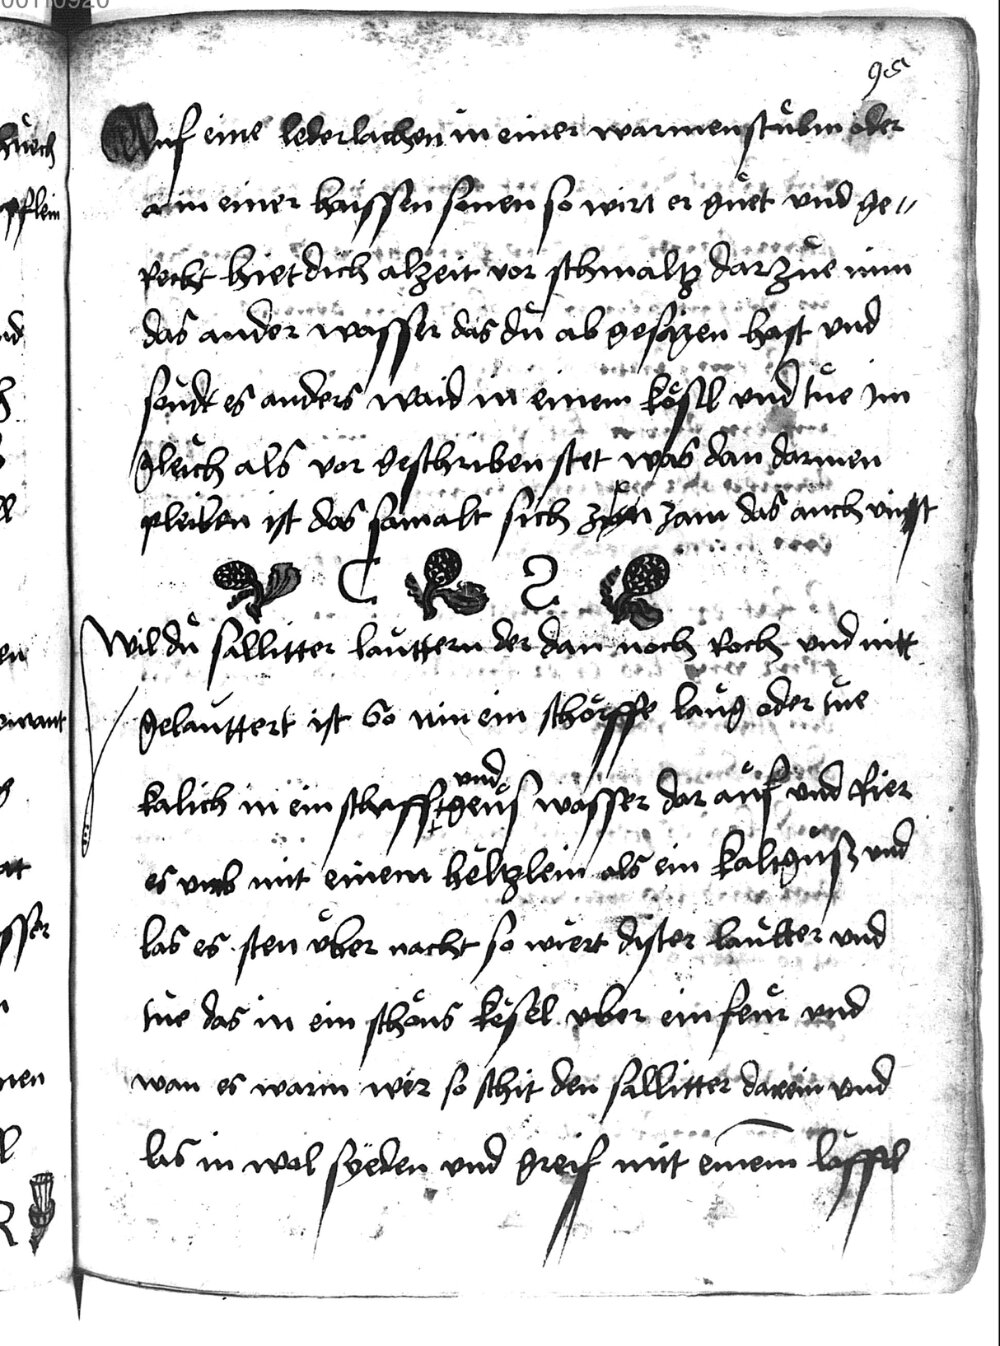 95
Auf eine lederlachen in einer warmen stubm oder
an in einer haissen sonen so wirt er guet und ge„
Recht hiet dich alzeit vor schmaltz dar zue nim
das ander wasser das du ab gesigen hast und
seudt es anders waid in einem kössl und tue im
gleich als vor geschriben stet was dan darinen
pleiben ist das samalt sich zam das auch
C S
Wil du sallitter lauttern der dan noch Roch und nitt
gelauttert ist So nim ein schörpffe laug oder tue
kalich in ein schafft und geus wasser dar auf und Rier
es umb mit einem heltzlein als ein kaltguß und
las es sten uber nacht so wiert dister lautter und
tue das in ein schöns kësel uber ein feur und
wan es warm wer so schit den sallitter darein und
las in wol syeden und greif mit einem löffl